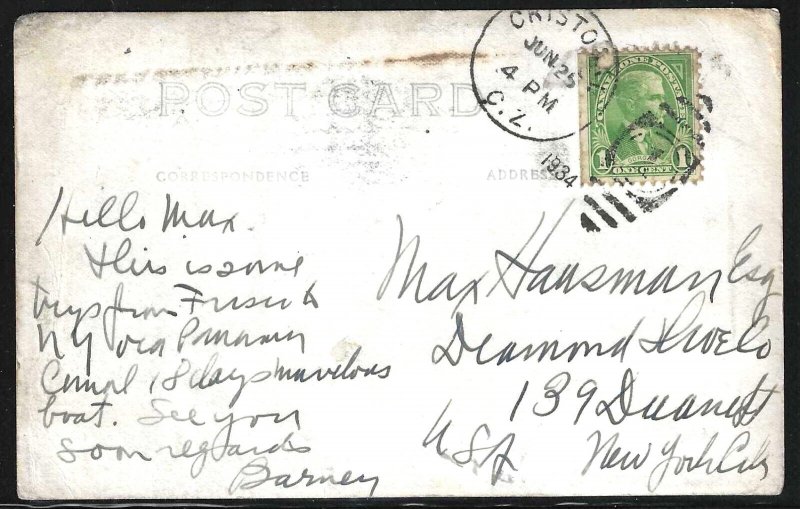 CRISTO
JUN 25
4 PM
C.Z.
1934
CANAL ZONE POSTAGE
1 1
ONE CENT
POST CARD
CORRESPONDENCE
ADDRESS
Hello Max
this is some
trip from Frisco to
NY via Panama
Canal 18 days marvelous
boat. See you
soon regards
Barney
Max Hausman Esq
Diamond
139 Duane St
New York City
USA